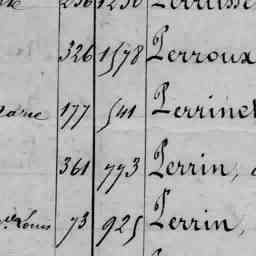 326 1578 Perroux
177 541 Perrinet
361 773 Perrin,
Louis 73 925 Perrin,